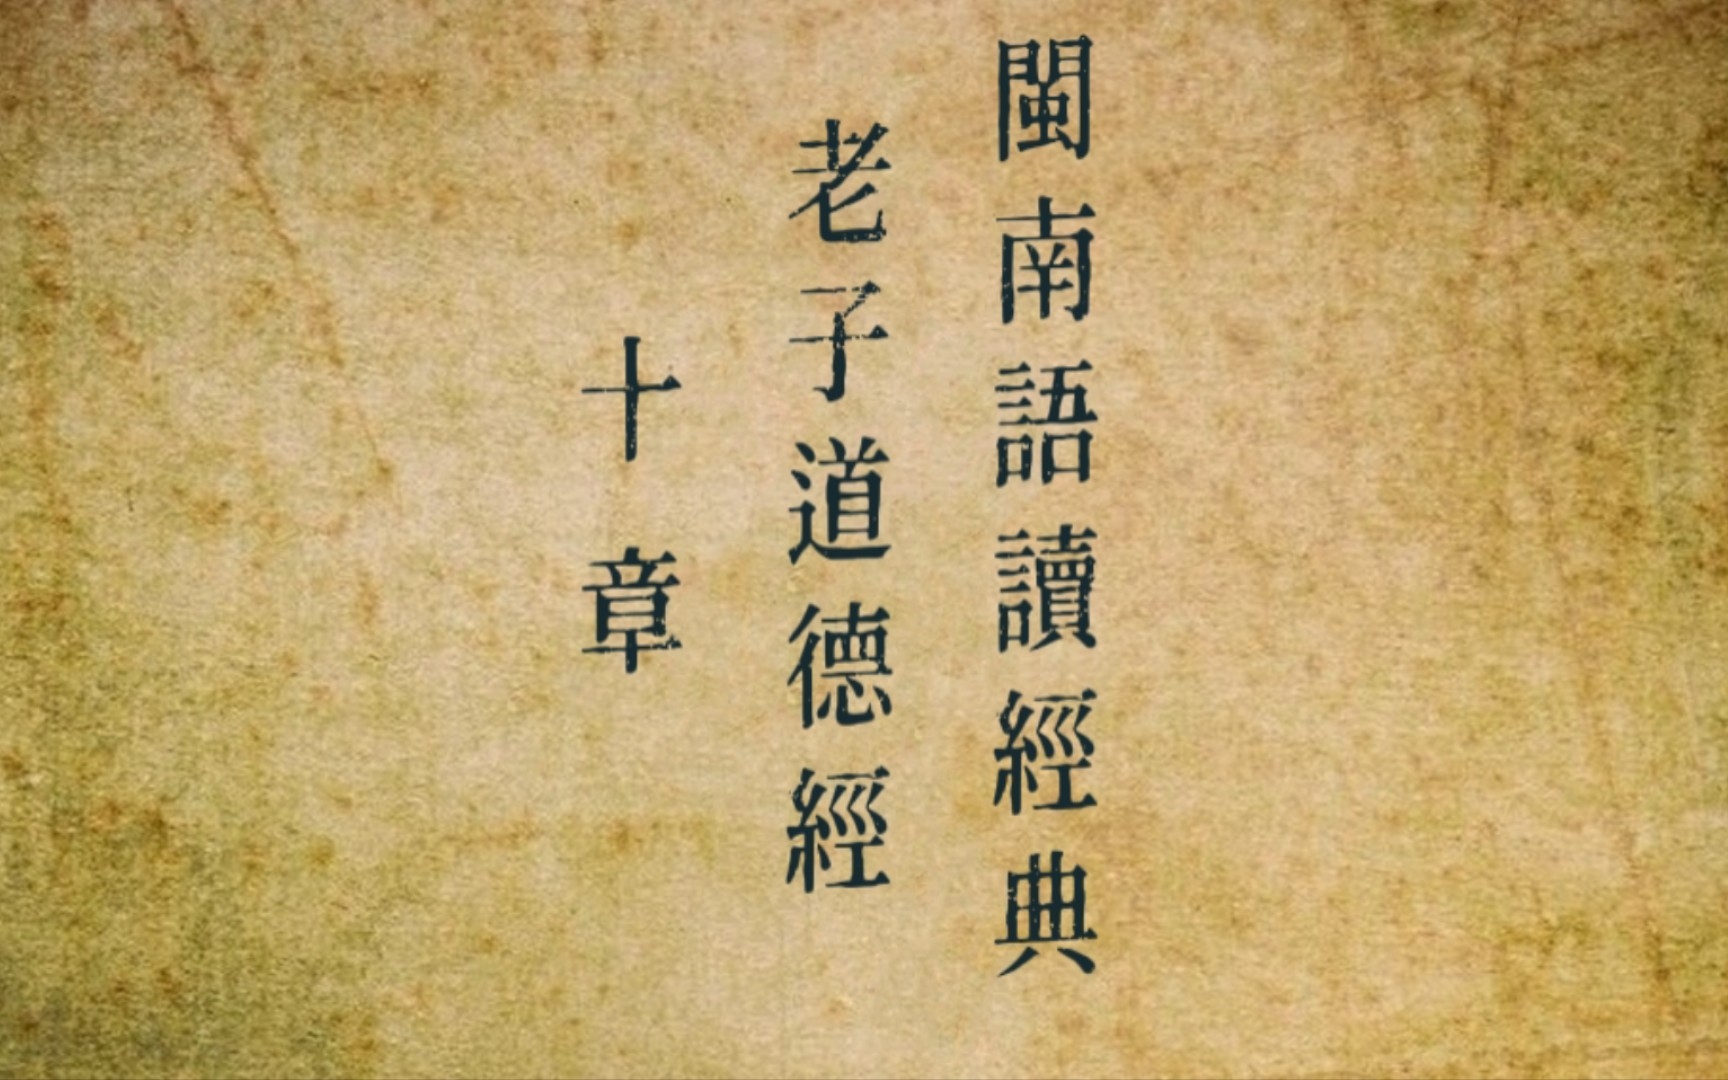 閩南語讀經典
老子道德經
十章